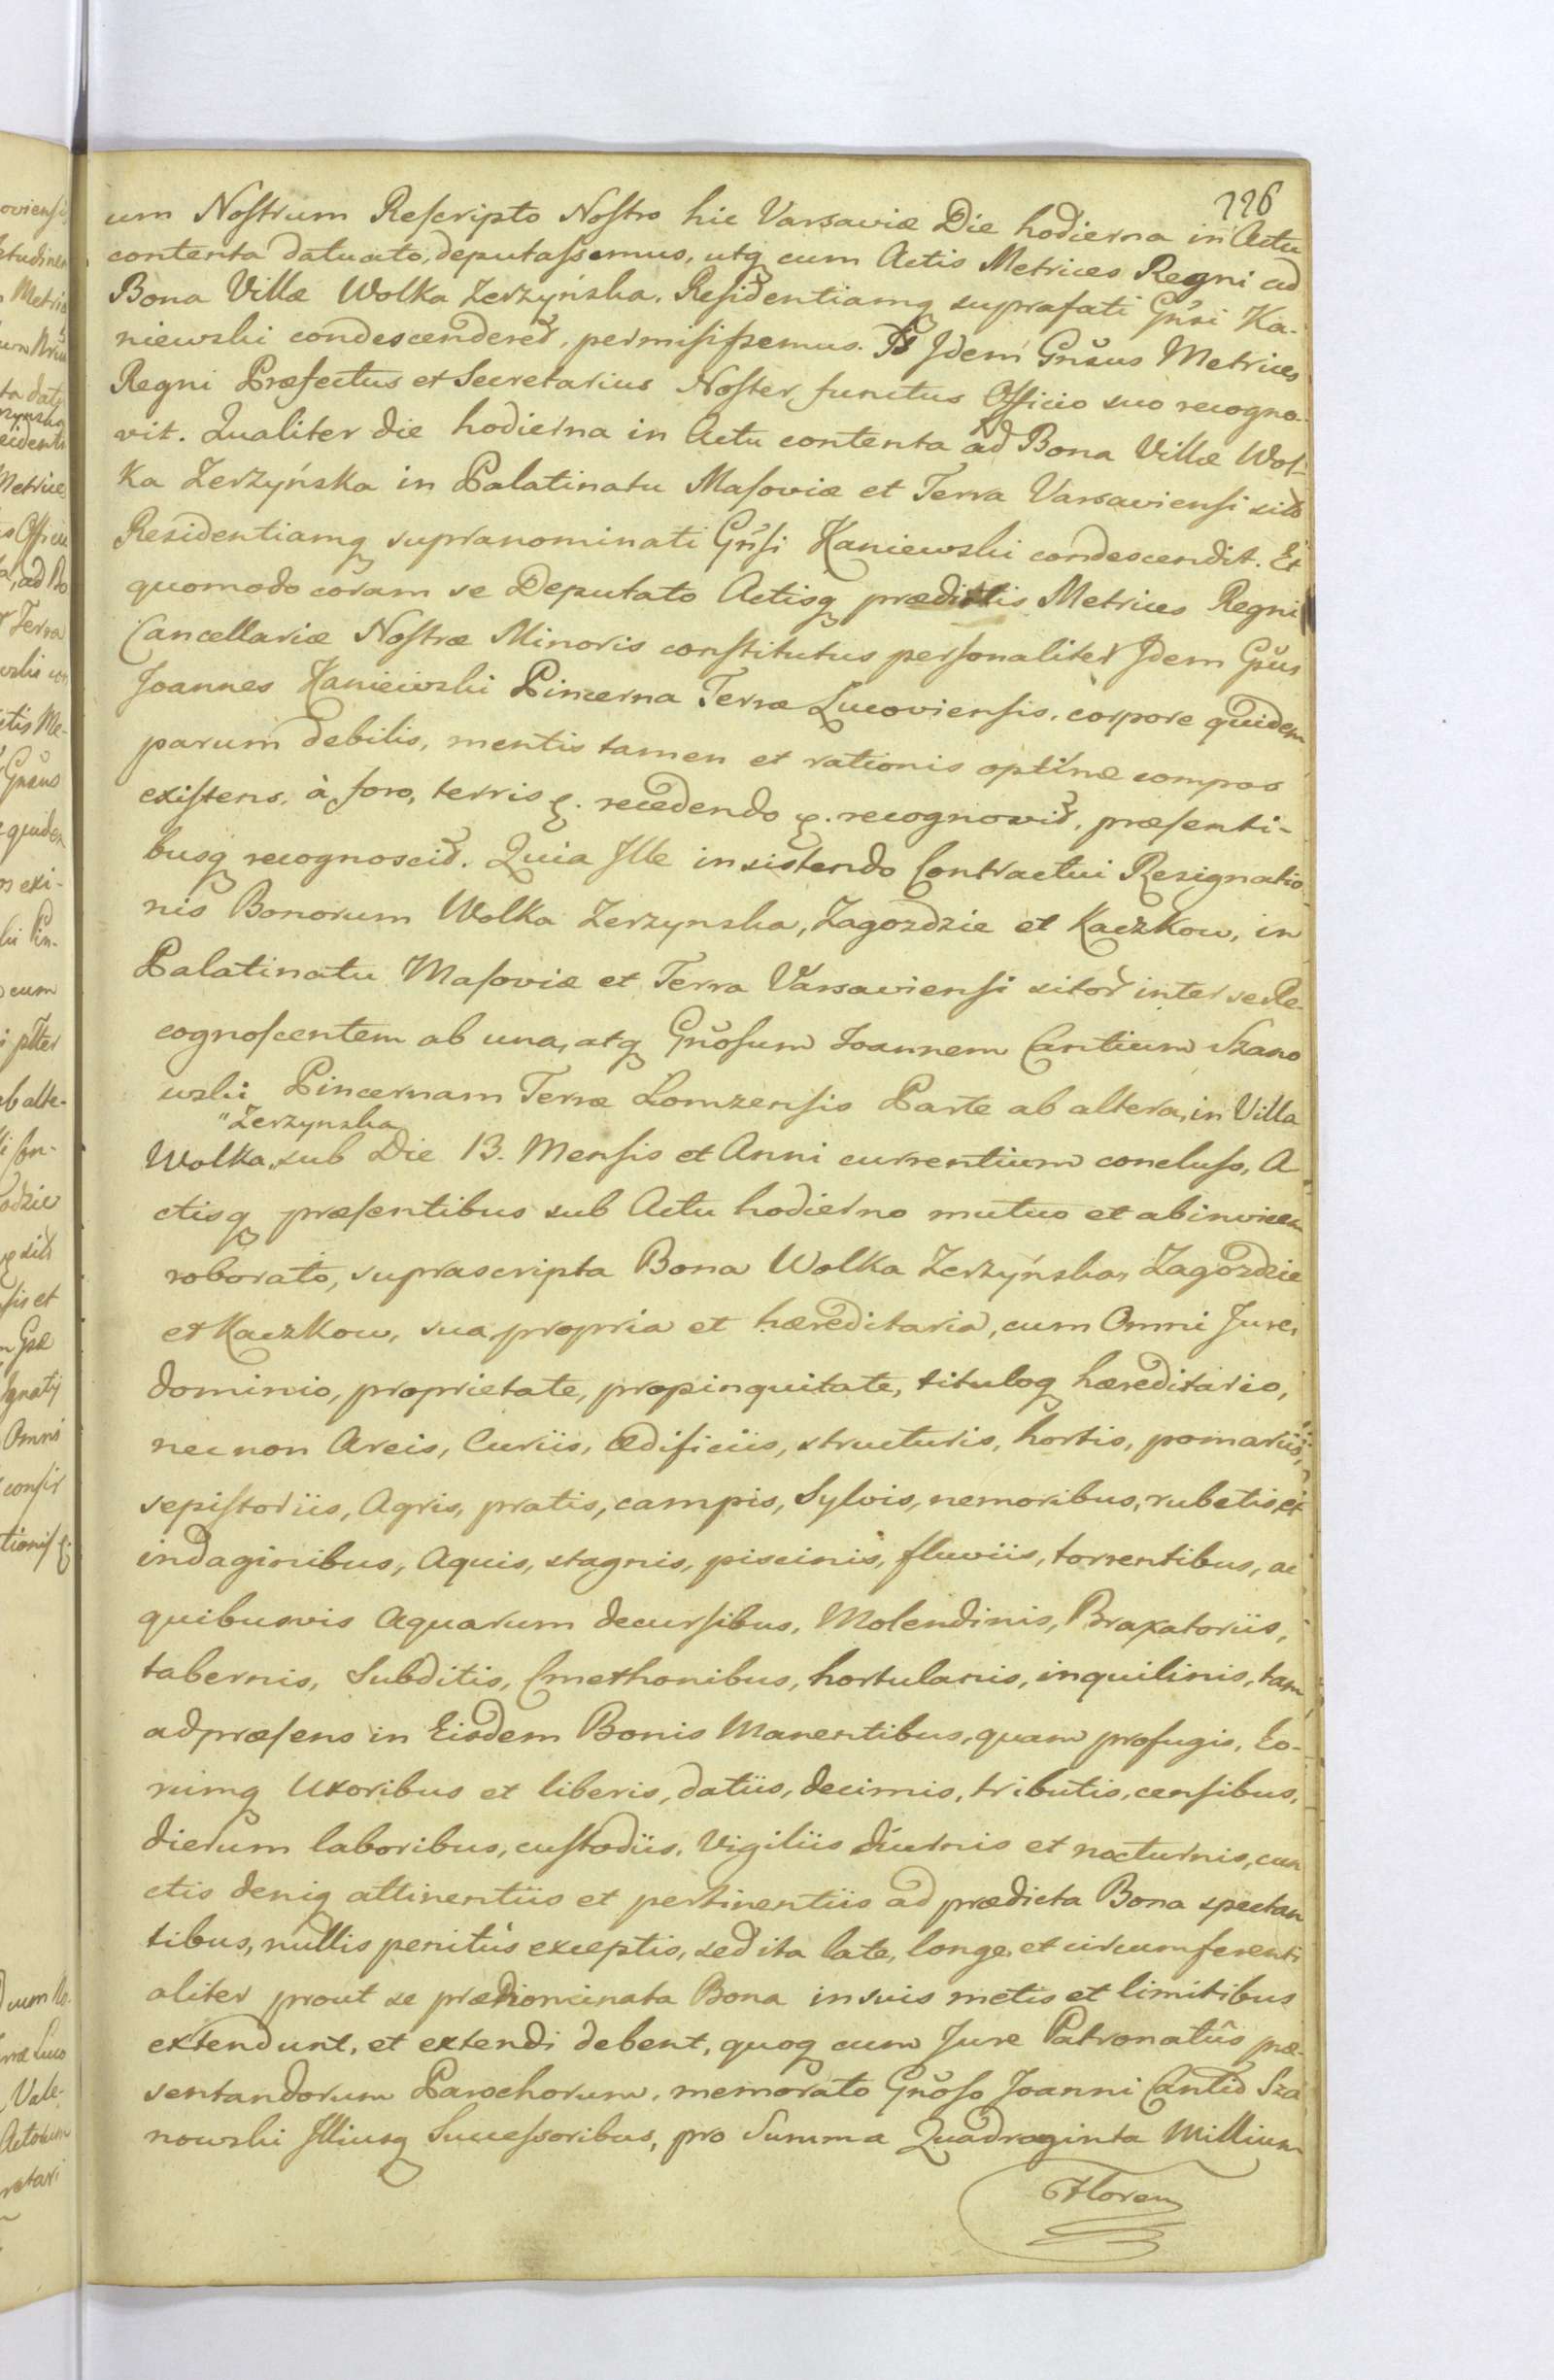 226
um Nostrum Rescripto Nostro hic Varsaviæ Die hodierna in Actu
contenta datuato, deputassemus, utq cum Actis Metrices Regni ad
Bona Villæ Wolka Zerzyńska, Residentiamq suprafati Gnsi Ka-
niewski condescenderet, permisissemus. Is Idem Gnsus Metrices
Regni Præfectus et Secretarius Noster, functus Officio suo recogno-
vit. Qualiter die hodierna in Actu contenta ad Bona Villæ Wol-
ka Zerzyńska in Palatinatu Masoviæ et Terra Varsaviensi sita
Residentiamq supranominati Gnsi Kaniewski condescendit. Et
quomodo coram se Deputato Actisq prædictis Metrices Regni
Cancellariæ Nostræ Minoris constitutus personaliter Idem Gnsus
Joannes Kaniewski Pincerna Terræ Lucoviensis, corpore quidem
parum debilis, mentis tamen et rationis optimæ compos
existens, à foro, terris q. recedendo q. recognovit, præsenti-
busq recognoscit. Quia Ille insistendo Contractui Resignatio-
nis Bonorum Wolka Zerzynska, Zagozdzie et Kaczkow, in
Palatinatu Masoviæ et Terra Varsaviensi sitor inter se Re-
cognoscentem ab una, atq Gnosum Joannem Cantium Szano
wski Pincernam Terræ Lomzensis Parte ab altera, in Villa
"Zerzynska
Wolka, sub Die 13. Mensis et Anni currentium concluso, A
ctisq præsentibus sub Actu hodierno mutuo et abinvicem
roborato, suprascripta Bona Wolka Zerzyńska, Zagozdzie
et Kaczkow, sua propria et hæreditaria, cum Omni Jure,
dominio, proprietate, propinquitate, tituloq hæreditario,
nec non Areis, Curiis, ædificiis, structuris, hortis, pomariis,
sepistoriis, Agris, pratis, campis, Sylvis, nemoribus, rubetis, et
indaginibus, Aquis, stagnis, piscinis, fluviis, torrentibus, ac
quibusvis Aquarum decursibus, Molendinis, Braxatoriis,
tabernis, Subditis, Cmethonibus, hortulanis, inquilinis, tam
ad præsens in Eisdem Bonis Manentibus, quam profugis, Eo-
rumq Uxoribus et liberis, datiis, decimis, tributis, censibus,
dierum laboribus, custodiis, Vigiliis diurnis et nocturnis, cun
ctis deniq attinentiis et pertinentiis ad prædicta Bona spectan
tibus, nullis penitùs exceptis, sed ita late, longe, et circumferenti
aliter prout se prænominata Bona in suis metis et limitibus
extendunt, et extendi debent, quoq cum Jure Patronatûs præ-
sentandorum Parochorum, memorato Gnoso Joanni Cantio Sza
nowski Illiusq Successoribus, pro Summa Quadraginta Millium
Floren